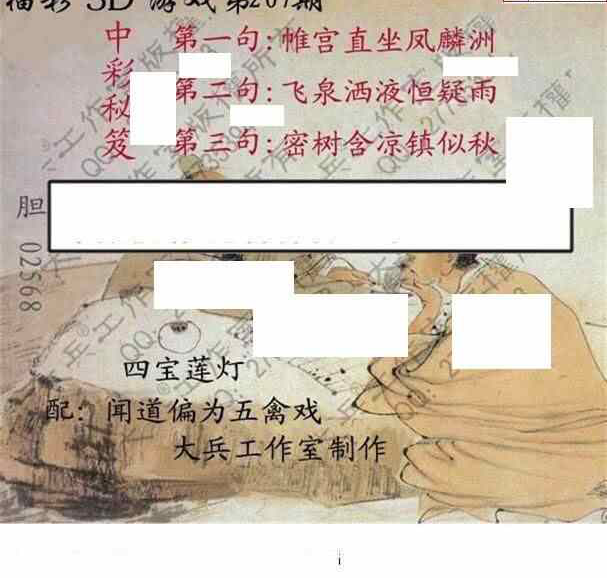 福彩3D游戏第207期
中彩秘笈
第一句:帷宫直坐凤麟洲
第二句:飞泉洒液恒疑雨
第三句:密树含凉镇似秋
胆 02568
四宝莲灯
配:闻道偏为五禽戏
大兵工作室制作